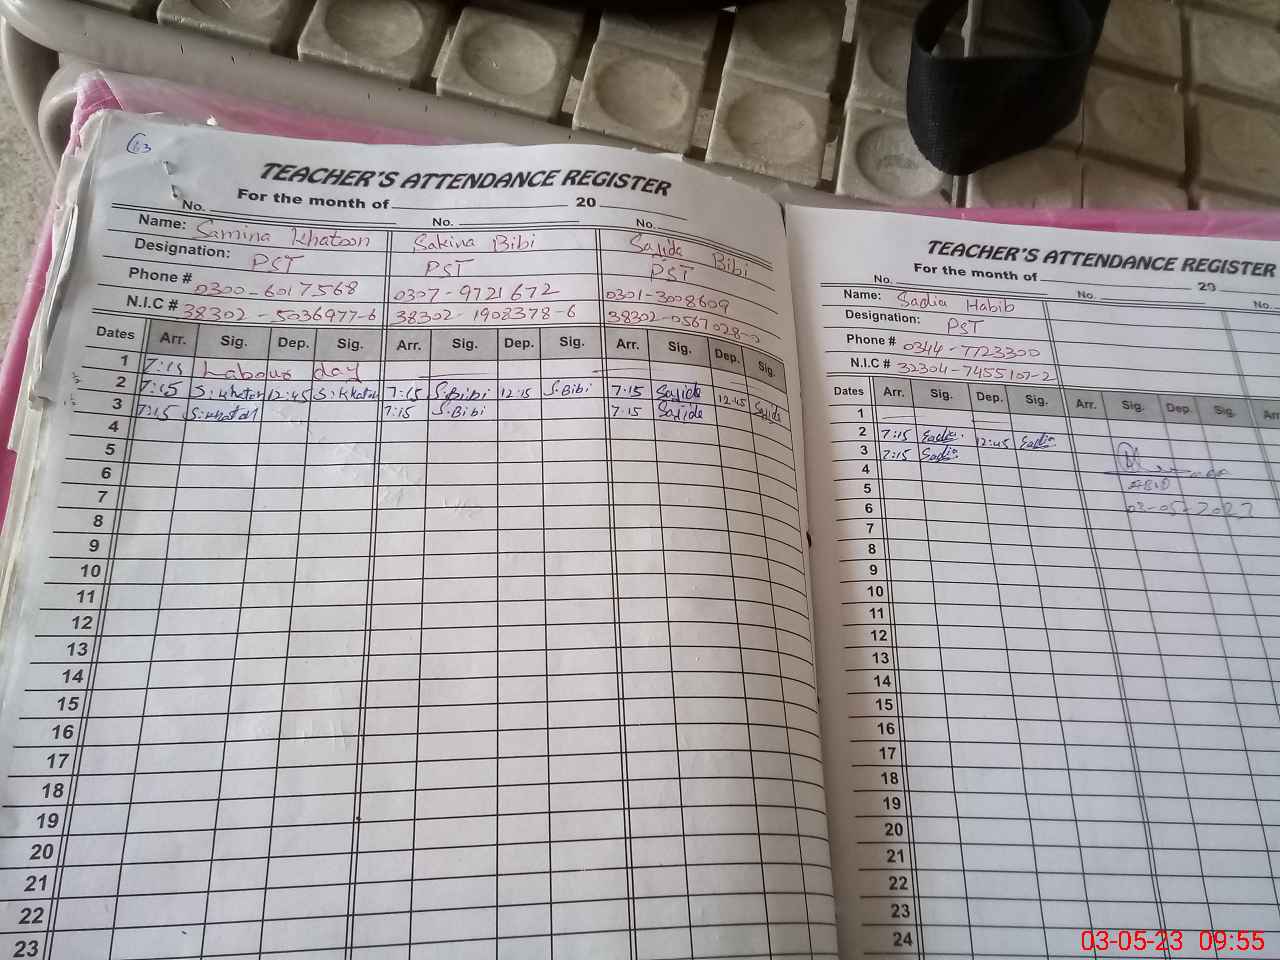 63
TEACHER'S ATTENDANCE REGISTER
For the month of 20
No. No. No.
Name: Samina Khatoon Sakina Bibi Sajida Bibi
Designation: PST PST PST
Phone # 0300-6017568 0307-9721672 0301-3008609
N.I.C # 38302-5036977-6 38302-1908378-6 38302-0567028-
Dates Arr. Sig. Dep. Sig. Arr. Sig. Dep. Sig. Arr. Sig. Dep. Sig.
1 7:15 Labour day
2 7:15 S:khaton 12:45 S:khaton 7:15 S.Bibi 12:45 S.Bibi 7:15 Sajida 12:45 Sajida
3 7:15 S:khaton 7:15 S.Bibi 7:15 Sajida
4
5
6
7
8
9
10
11
12
13
14
15
16
17
18
19
20
21
22
23
TEACHER'S ATTENDANCE REGISTER
For the month of 20
No. No. No.
Name: Sadia Habib
Designation: PST
Phone # 0344-7723300
N.I.C # 32304-7455107-2
Dates Arr. Sig. Dep. Sig. Arr. Sig. Dep. Sig. Arr.
1
2 7:15 Sadia 12:45 Sadia
3 7:15 Sadia
4
5
6 03-05-2023
7
8
9
10
11
12
13
14
15
16
17
18
19
20
21
22
23
24
03-05-23 09:55